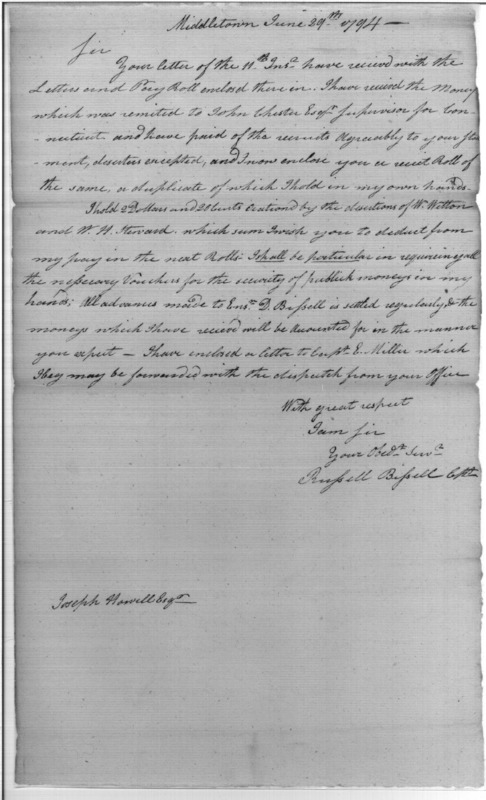 Middletown June 29th 1794 —
Sir
Your letter of the 11th Inst have recieved with the
Letters and Pay Roll enclosed therein. I have recieved the Money
which was remited to John Chester Esqr Supervisor for Con-
-necticut and have paid of the recruits Agreeably to your State-
-ment, deserters excepted, and I now enclose you a receit Roll of
the same, a duplicate of which I hold in my own hands.
I hold 2 Dollars and 20 Cents by the desertions of Wm Witton
and W. H. Steward. which sum I wish you to deduct from
my pay in the next Rolls. I shall be particular in requiring all
the nessecary Vouchers for the security of publick moneys in my
hands; All advances made to Ensn D. Bissell is settled regularly & the
moneys which I have recieved will be accounted for in the manner
you expect — I have enclosed a letter to Capt. E. Miller which
I beg may be forwarded with the dispatch from your Office
With great respect
I am Sir
Your Obedt Servt
Russell Bissell Capt
Joseph Howell Esqr